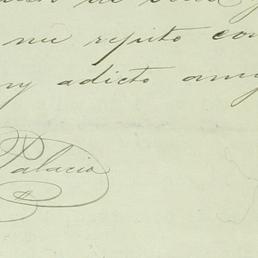 me repito con
y adicto amig
Palacio